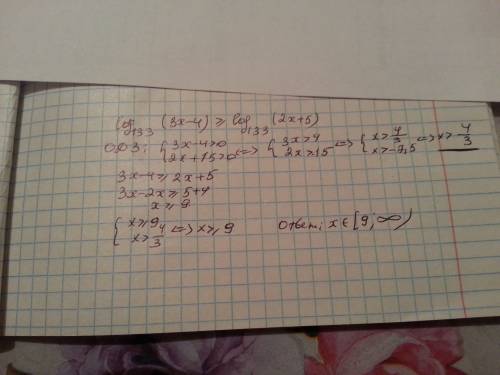 log₁₃₃ (3x-4) ≥ log₁₃₃ (2x+5)
ООЗ: { 3x-4>0 2x+15>0 <=> { 3x>4 2x>15 <=> { x>4/3 x>-7,5 <=> x>4/3
3x-4≥2x+5
3x-2x≥5+4
x≥9
{ x≥9 x>4/3 <=> x≥9 Ответ: x∈[9;∞)